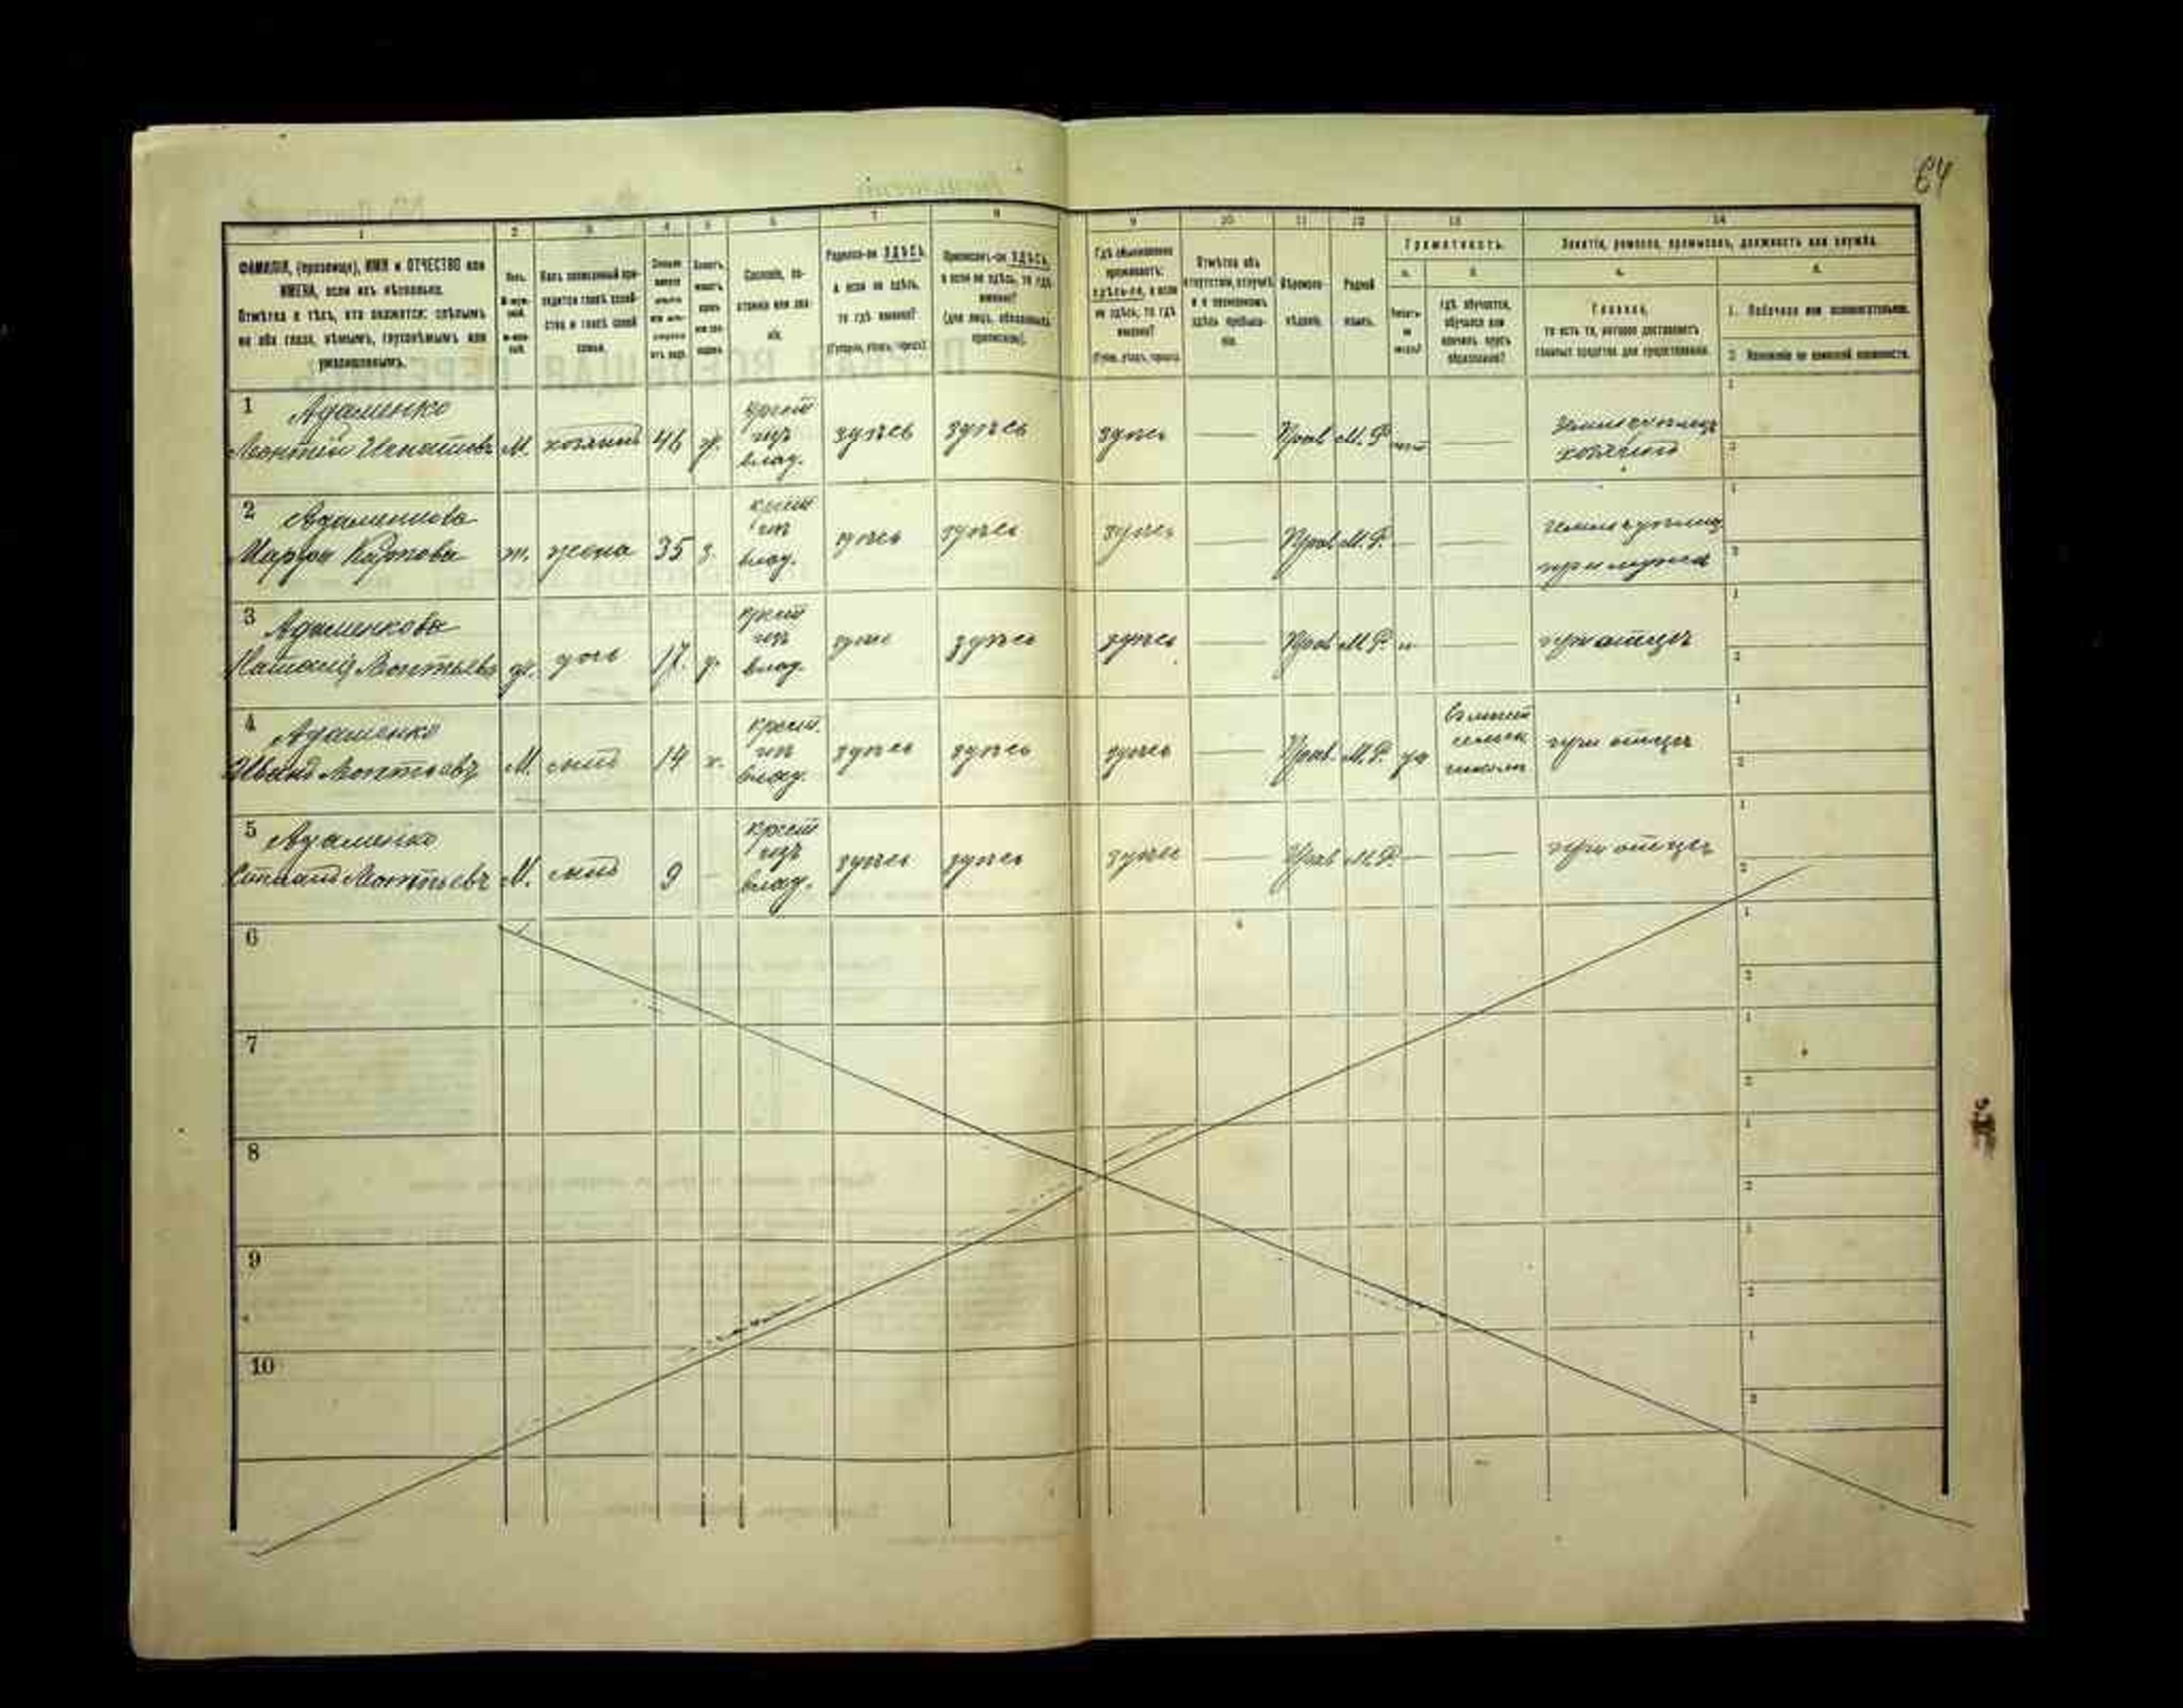 64
1 2 3 4 5 6 7 8 9 10 11 12 13 14
ФАМИЛІЯ, (прозвище), ИМЯ и ОТЧЕСТВО или
ИМЕНА, если ихъ нѣсколько.
Отмѣтка о тѣхъ, кто окажется: слѣпымъ
на оба глаза, нѣмымъ, глухонѣмымъ или
умалишеннымъ.
Полъ.
Какъ записанный при-
ходится главѣ хозяй-
ства и главѣ своей
семьи.
Сословіе, со-
стояніе или зва-
ніе.
Родился-ли ЗДѢСЬ,
а если не здѣсь,
то гдѣ именно?
(Губернія, уѣздъ, городъ).
Приписанъ-ли ЗДѢСЬ,
а если не здѣсь, то гдѣ
именно?
(для лицъ, обязанныхъ
припискою).
Гдѣ обыкновенно
проживаетъ:
здѣсь-ли, а если
не здѣсь, то гдѣ
именно?
(Губер., уѣздъ, городъ).
Отмѣтка объ
отсутствіи, отлучкѣ
и о временномъ
здѣсь пребыва-
ніи.
Вѣроиспо-
вѣданіе.
Родной
языкъ.
Грамотность.
а. б.
Умѣетъ-
ли
читать?
Гдѣ обучается,
обучался или
кончилъ курсъ
образованія?
Занятіе, ремесло, промыселъ, должность или служба.
а. б.
Главное,
то есть то, которое доставляетъ
главныя средства для существованія.
1. Побочное или вспомогательное.
2. Положеніе по воинской повинности.
1 Адаменко
Леонтій Игнатовъ М. хозяинъ 46 ж. крест изъ влад. здѣсь здѣсь здѣсь — Прав М.Р. нѣт — земледѣлецъ хозяинъ
2 Адаменкова
Марфа Карпова ж. жена 35 з. крест изъ влад. здѣсь здѣсь здѣсь — Прав М.Р. — — земледѣлец при мужѣ
3 Адаменкова
Наталія Леонтьева ж. дочь 17. д. крест изъ влад. здѣсь здѣсь здѣсь — Прав М.Р. н — при отцѣ
4 Адаменко
Иванъ Леонтьевъ М. сынъ 14 х. крест. изъ влад. здѣсь здѣсь здѣсь — Прав. М.Р. да въ мѣст сельск школѣ при отцѣ
5 Адаменко
Степанъ Леонтьевъ М. сынъ 9 — крест изъ влад. здѣсь здѣсь здѣсь — Прав М.Р. — — при отцѣ
6
7
8
9
10